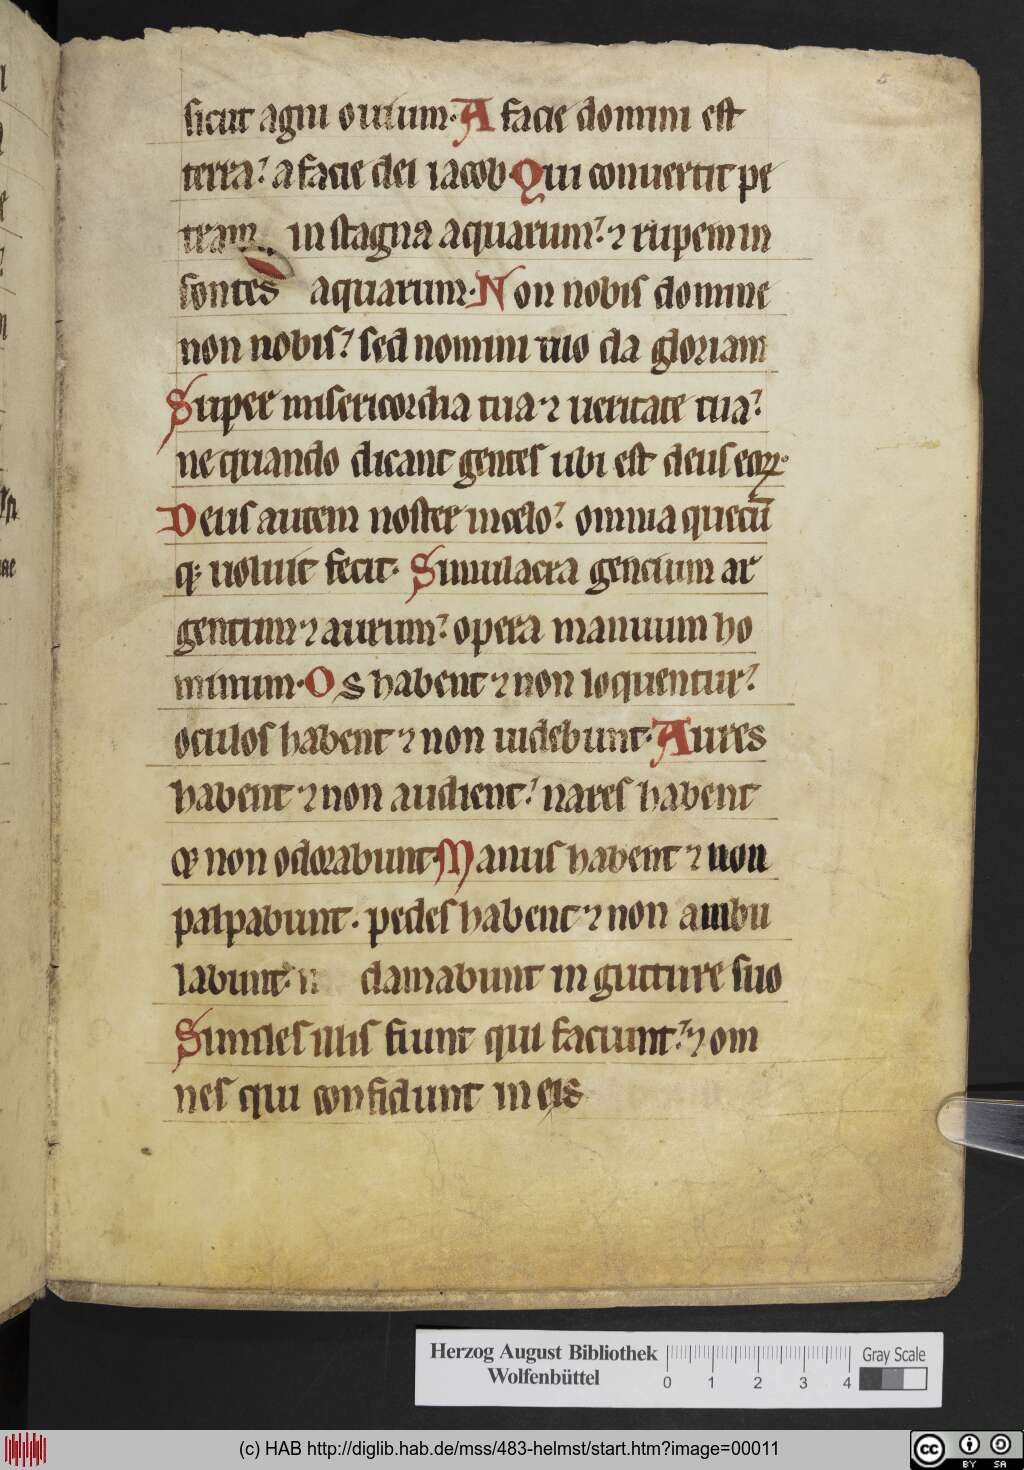 sicut agni ouium. A facie domini est
terra? a facie dei iacob. Qui conuertit pe
tram in stagna aquarum? ⁊ rupem in
fontes aquarum. Non nobis domine
non nobis? sed nomini tuo da gloriam
Super misericordia tua ⁊ ueritate tua?
ne quando dicant gentes ubi est deus eoꝝ.
Deus autem noster in celo? omnia quecū
qꝫ uoluit fecit. Simulacra gencium ar
gentum ⁊ aurum? opera manuum ho
minum. Os habent ⁊ non loquentur?
oculos habent ⁊ non uidebunt. Aures
habent ⁊ non audient? nares habent
non odorabunt. Manus habent ⁊ non
palpabunt. pedes habent ⁊ non ambu
labunt. n clamabunt in gutture suo
Similes illis fiunt qui faciunt? ⁊ om
nes qui confidunt in eis
Herzog August Bibliothek
Wolfenbüttel
0 1 2 3 4
Gray Scale
(c) HAB http://diglib.hab.de/mss/483-helmst/start.htm?image=00011
cc BY SA